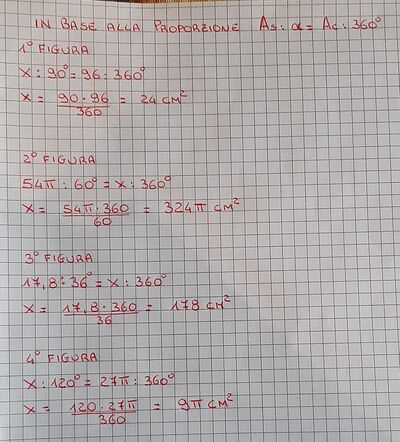 IN BASE ALLA PROPORZIONE As: α = Ac: 360°
1° FIGURA
X : 90° = 96 : 360°
X = 90 · 96 / 360 = 24 CM²
2° FIGURA
54π : 60° = X : 360°
X = 54π · 360 / 60 = 324π CM²
3° FIGURA
17,8 : 36° = X : 360°
X = 17,8 · 360 / 36 = 178 CM²
4° FIGURA
X : 120° = 27π : 360°
X = 120 · 27π / 360 = 9π CM²